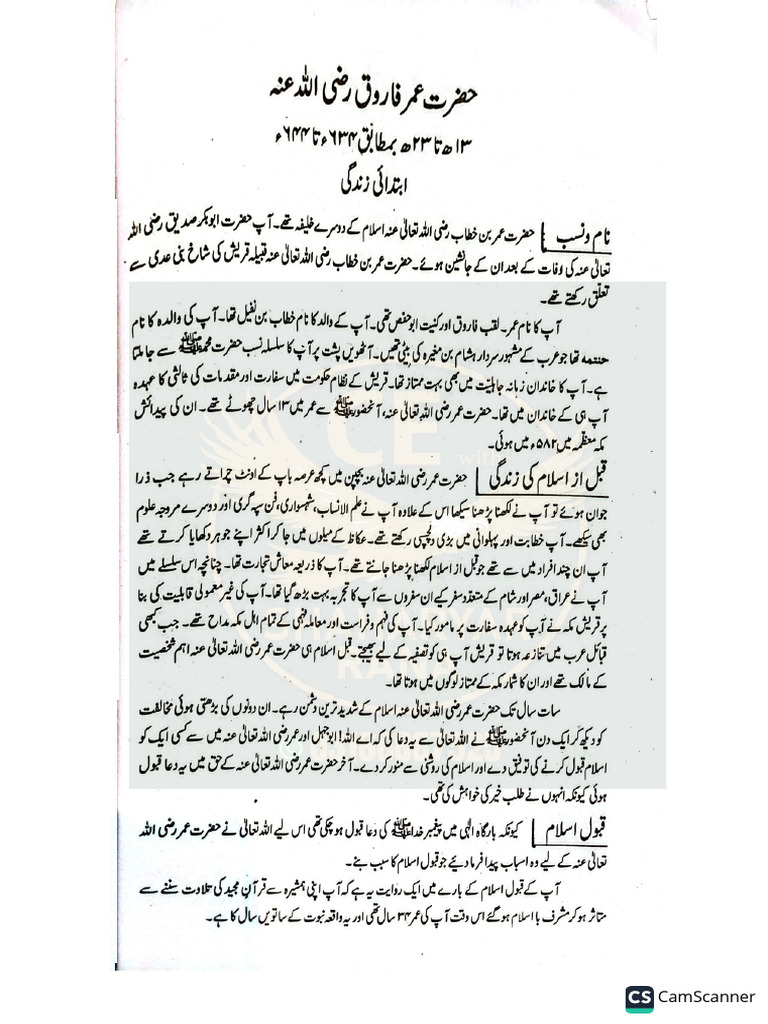 حضرت عمر فاروق رضی اللہ عنہ
۱۳ھ تا ۲۳ھ بمطابق ۶۳۴ء تا ۶۴۴ء
ابتدائی زندگی
نام و نسب حضرت عمر بن خطاب رضی اللہ تعالیٰ عنہ اسلام کے دوسرے خلیفہ تھے۔ آپ حضرت ابوبکر صدیق رضی اللہ
تعالیٰ عنہ کی وفات کے بعد ان کے جانشین ہوئے۔ حضرت عمر بن خطاب رضی اللہ تعالیٰ عنہ قبیلہ قریش کی شاخ بنی عدی سے
تعلق رکھتے تھے۔
آپ کا نام عمر۔ لقب فاروق اور کنیت ابو حفص تھی۔ آپ کے والد کا نام خطاب بن نفیل تھا۔ آپ کی والدہ کا نام
حنتمہ تھا جو عرب کے مشہور سردار ہشام بن مغیرہ کی بیٹی تھیں۔ آٹھویں پشت پر آپ کا سلسلہ نسب حضرت محمد ﷺ سے جا ملتا
ہے۔ آپ کا خاندان زمانہ جاہلیت میں بھی بہت ممتاز تھا۔ قریش کے نظام حکومت میں سفارت اور مقدمات کی ثالثی کا عہدہ
آپ ہی کے خاندان میں تھا۔ حضرت عمر رضی اللہ تعالیٰ عنہ، آنحضور ﷺ سے عمر میں ۱۳ سال چھوٹے تھے۔ ان کی پیدائش
مکہ معظمہ میں ۵۸۲ء میں ہوئی۔
قبل از اسلام کی زندگی حضرت عمر رضی اللہ تعالیٰ عنہ بچپن میں کچھ عرصہ باپ کے اونٹ چراتے رہے جب ذرا
جوان ہوئے تو آپ نے لکھنا پڑھنا سیکھا اس کے علاوہ آپ نے علم الانساب، شہسواری، فن سپہ گری اور دوسرے مروجہ علوم
بھی سیکھے۔ آپ خطابت اور پہلوانی میں بڑی دلچسپی رکھتے تھے۔ عکاظ کے میلوں میں جا کر اکثر اپنے جوہر دکھایا کرتے تھے
آپ ان چند افراد میں سے تھے جو قبل از اسلام لکھنا پڑھنا جانتے تھے۔ آپ کا ذریعہ معاش تجارت تھا۔ چنانچہ اس سلسلے میں
آپ نے عراق، مصر اور شام کے متعدد سفر کیے ان سفروں سے آپ کا تجربہ بہت بڑھ گیا تھا۔ آپ کی غیر معمولی قابلیت کی بنا
پر قریش مکہ نے آپ کو عہدہ سفارت پر مامور کیا۔ آپ کی فہم و فراست اور معاملہ فہمی کے تمام اہل مکہ مداح تھے۔ جب کبھی
قبائل عرب میں تنازعہ ہوتا تو قریش آپ ہی کو تصفیہ کے لیے بھیجتے۔ قبل اسلام ہی حضرت عمر رضی اللہ تعالیٰ عنہ اہم شخصیت
کے مالک تھے اور ان کا شمار مکہ کے ممتاز لوگوں میں ہوتا تھا۔
سات سال تک حضرت عمر رضی اللہ تعالیٰ عنہ اسلام کے شدید ترین دشمن رہے۔ ان دونوں کی بڑھتی ہوئی مخالفت
کو دیکھ کر ایک دن آنحضور ﷺ نے اللہ تعالیٰ سے یہ دعا کی کہ اے اللہ! ابوجہل اور عمر رضی اللہ تعالیٰ عنہ میں سے کسی ایک کو
اسلام قبول کرنے کی توفیق دے اور اسلام کی روشنی سے منور کر دے۔ آخر حضرت عمر رضی اللہ تعالیٰ عنہ کے حق میں یہ دعا قبول
ہوئی کیونکہ انہوں نے طلب خیر کی خواہش کی تھی۔
قبول اسلام کیونکہ بارگاہ الٰہی میں پیغمبر خدا ﷺ کی دعا قبول ہو چکی تھی اس لیے اللہ تعالیٰ نے حضرت عمر رضی اللہ
تعالیٰ عنہ کے لیے وہ اسباب پیدا فرما دیئے جو قبول اسلام کا سبب بنے۔
آپ کے قبول اسلام کے بارے میں ایک روایت یہ ہے کہ آپ اپنی ہمشیرہ سے قرآن مجید کی تلاوت سننے سے
متاثر ہو کر مشرف با اسلام ہو گئے اس وقت آپ کی عمر ۳۴ سال تھی اور یہ واقعہ نبوت کے ساتویں سال کا ہے۔
CE
with
RANA
CS CamScanner